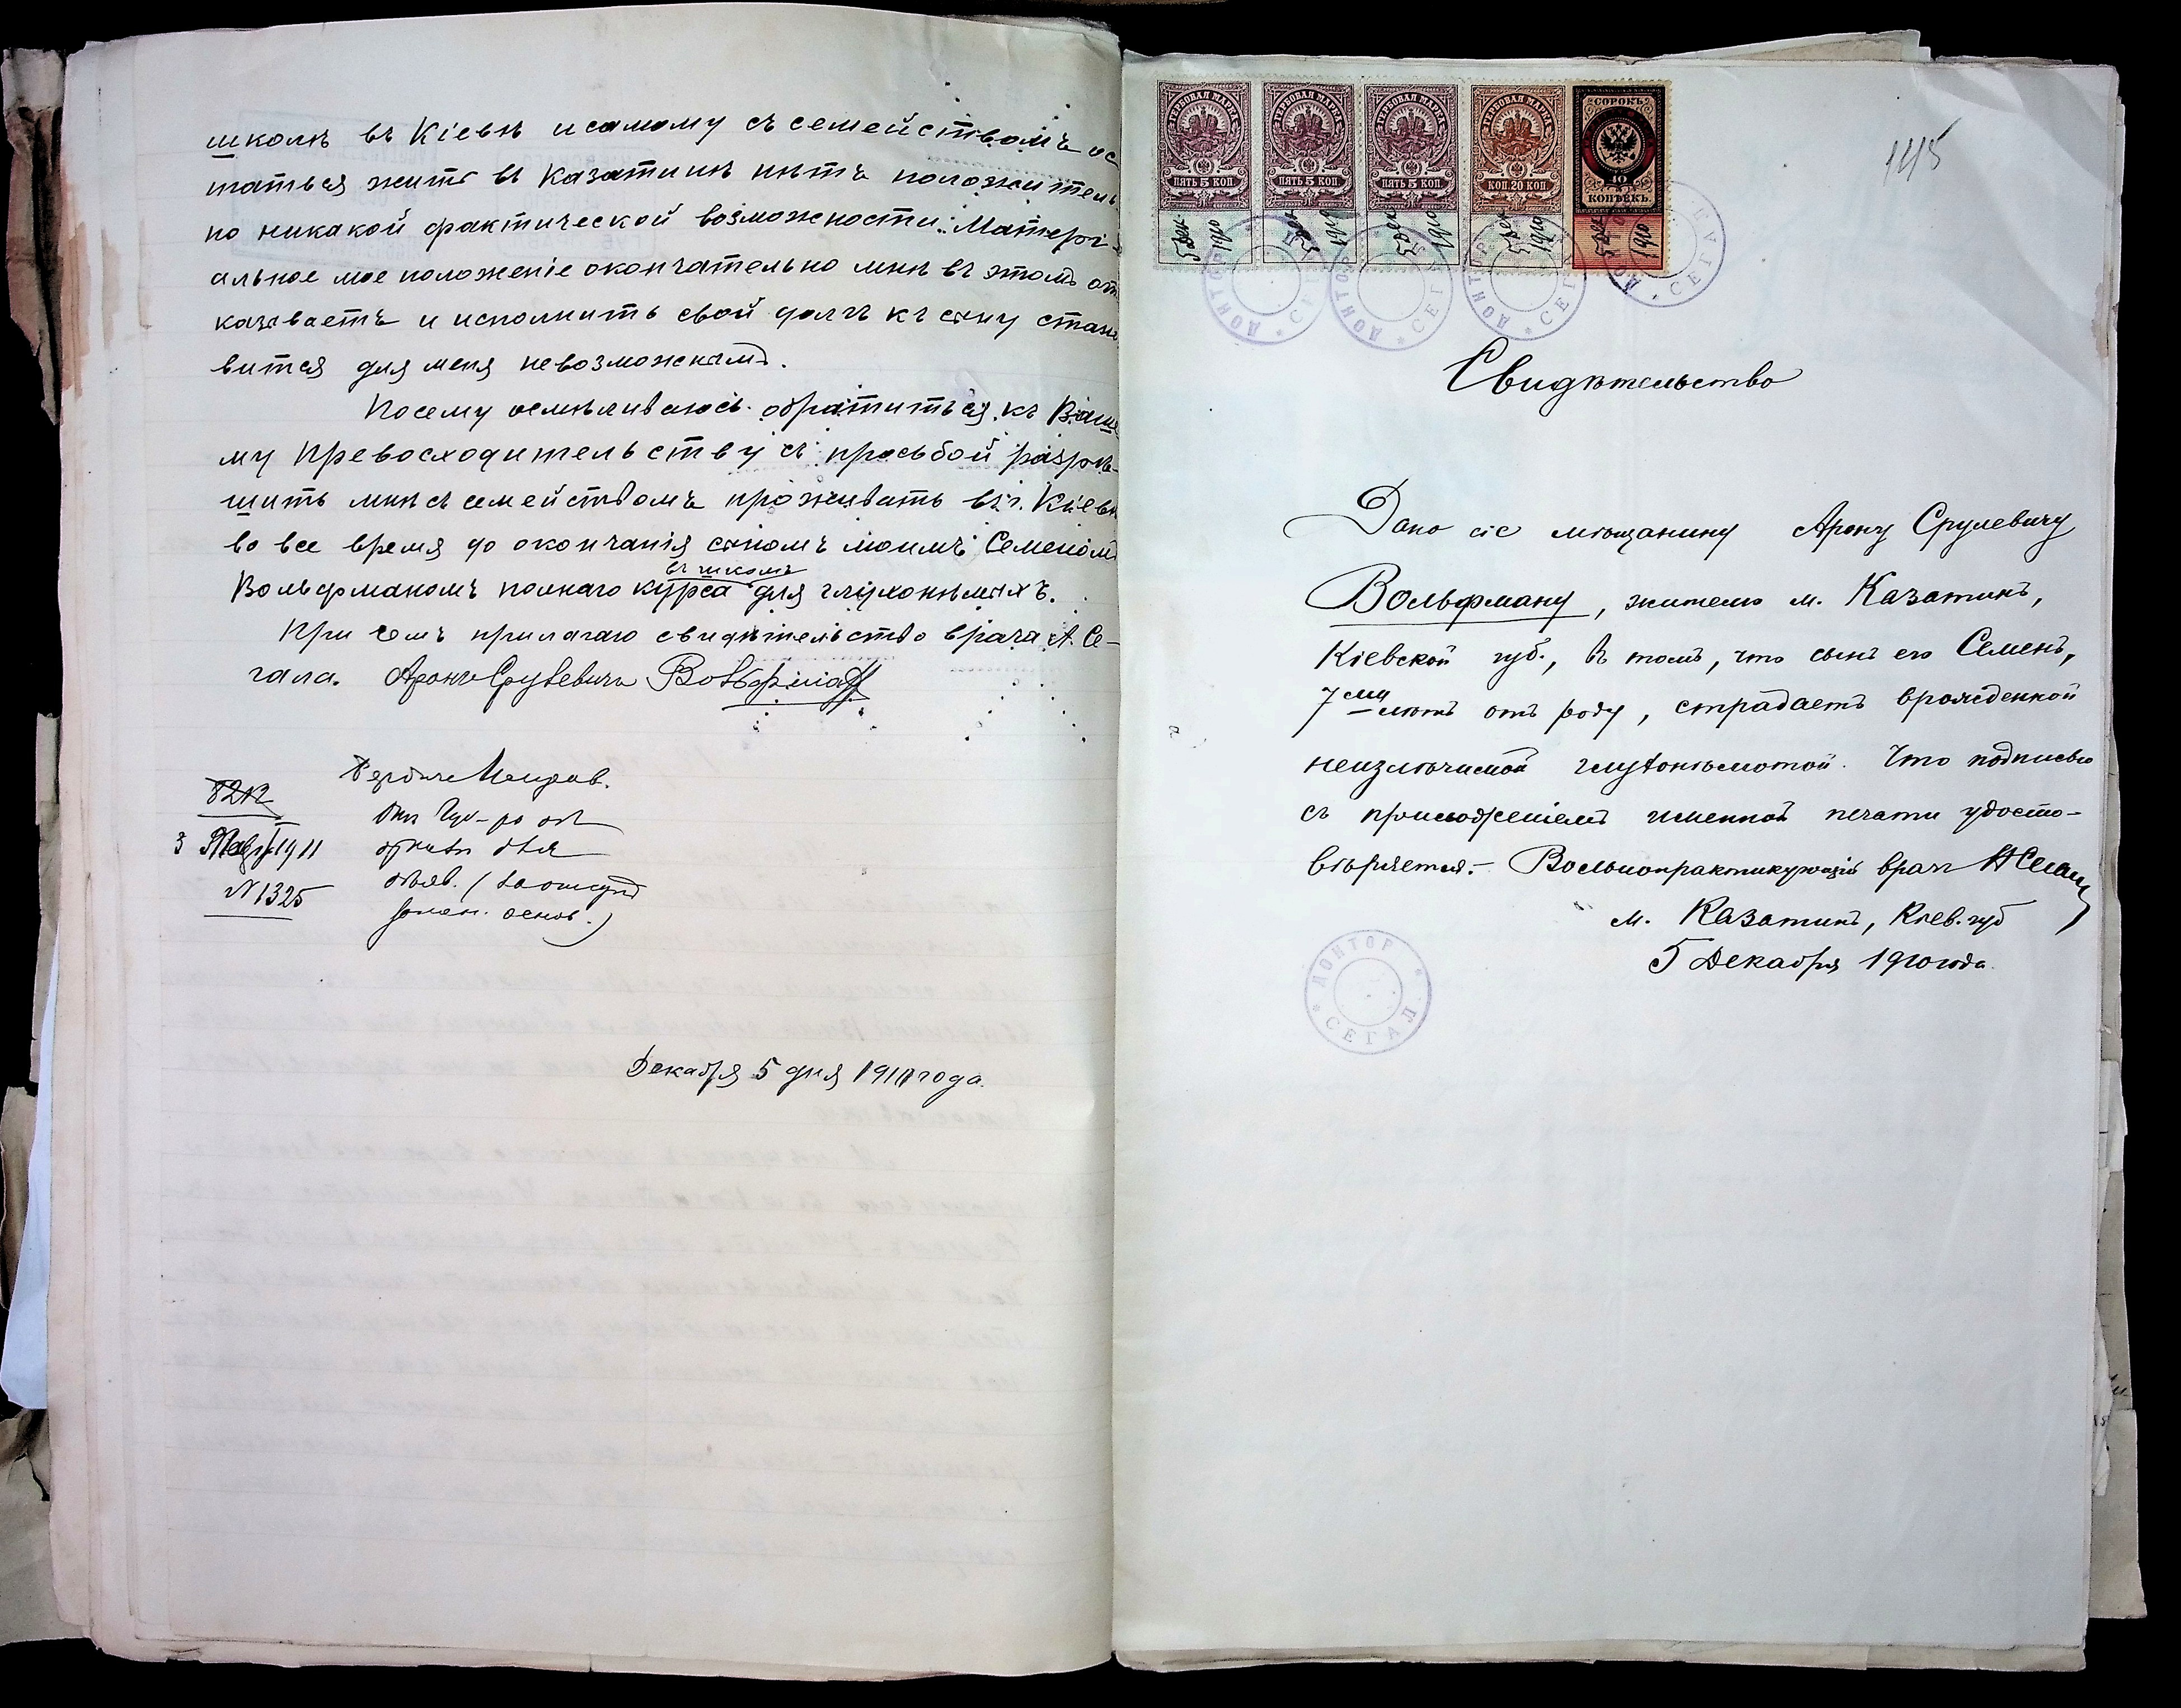 школѣ въ Кіевѣ и самому съ семействомъ ос
таться жить въ Казатинѣ нѣтъ положитель
но никакой фактической возможности. Матері-
альное мое положеніе окончательно мнѣ въ этомъ от
казываетъ и исполнить свой долгъ къ сыну стано
вится для меня невозможнымъ.
Посему осмѣливаюсь обратиться къ Ваше
му Превосходительству съ просьбой разрѣ-
шить мнѣ съ семействомъ проживать въ г. Кіевѣ
во все время до окончанія сыномъ моимъ Семеномъ
въ школѣ
Вольфманомъ полнаго курса для глухонѣмыхъ.
При семъ прилагаю свидѣтельство врача А. Се-
гала. Аронъ Срулевичъ Вольфман
8212
3 1911
N 1325
Декабря 5 дня 1910 года.
145
ГЕРБОВАЯ МАРКА ГЕРБОВАЯ МАРКА ГЕРБОВАЯ МАРКА ГЕРБОВАЯ МАРКА СОРОКЪ
40
ПЯТЬ 5 КОП. ПЯТЬ 5 КОП. ПЯТЬ 5 КОП. КОП. 20 КОП. КОПѢЕКЪ
5 Дек 1910 5 Дек 1910 5 Дек 1910 5 Дек 1910 5 Дек 1910
Свидѣтельство
Дано сіе мѣщанину Арону Срулевичу
Вольфману, жителю м. Казатинъ,
Кіевской губ., въ томъ, что сынъ его Семенъ,
7ми лѣтъ отъ роду, страдаетъ врожденной
неизлѣчимой глухонѣмотой. Что подписью
съ приложеніемъ именной печати удосто-
вѣряется.- Вольнопрактикующій врачъ А Сегалъ
м. Казатинъ, Кіев. губ
5 Декабря 1910 года.
ДОКТОР
СЕГАЛ